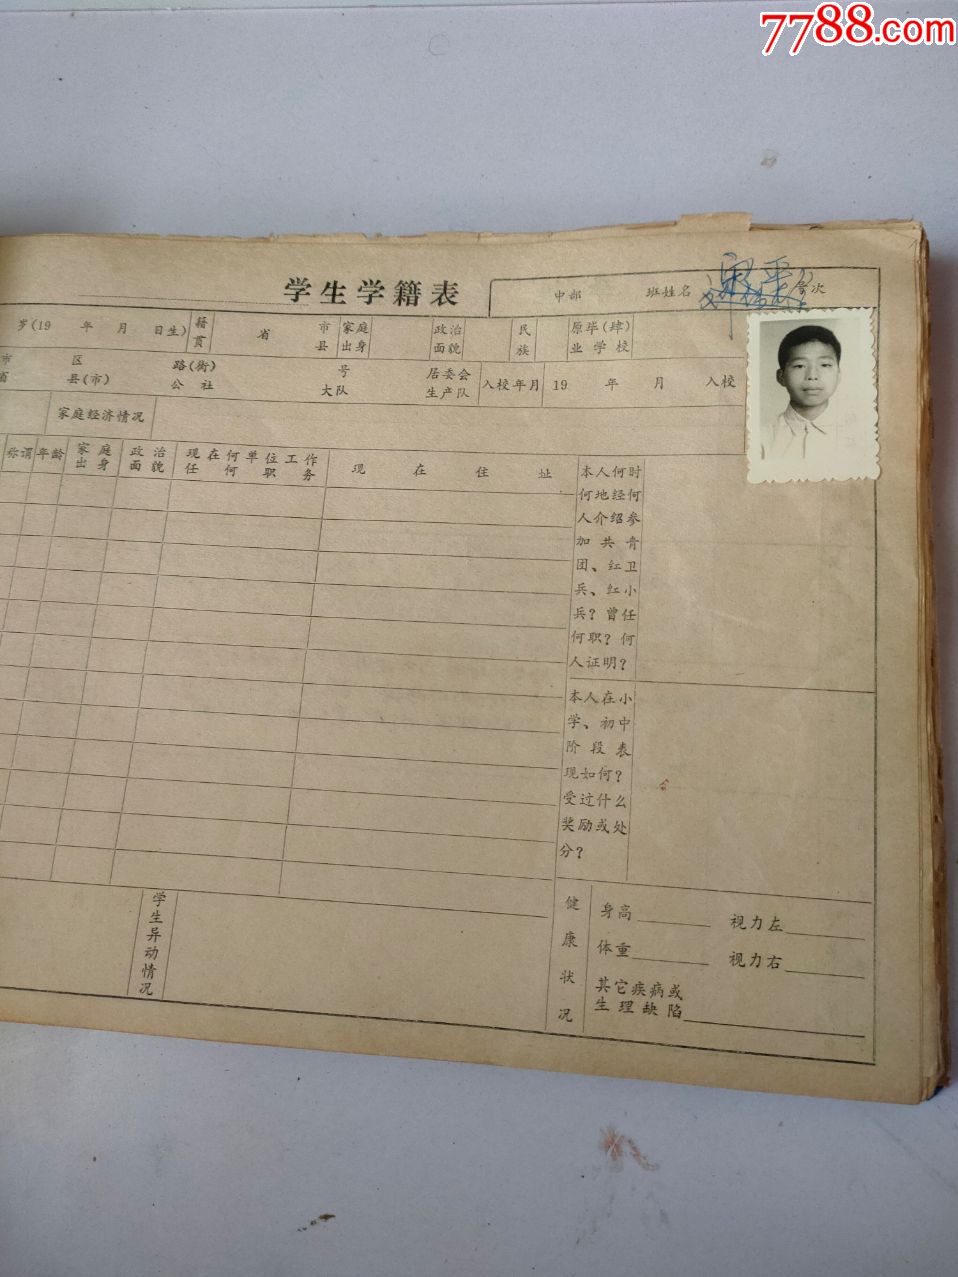 7788.com
学生学籍表
中部 班姓名 号次
岁(19 年 月 日生) 籍贯 省 市县 家庭出身 政治面貌 民族 原毕(肄)业学校
市 区 路(街) 号 居委会
省 县(市) 公社 大队 生产队 入校年月 19 年 月 入校
家庭经济情况
称谓 年龄 家庭出身 政治面貌 现在何单位工作任何职务 现在住址
本人何时
何地经何
人介绍参
加共青
团、红卫
兵、红小
兵？曾任
何职？何
人证明？
本人在小
学、初中
阶段表
现如何？
受过什么
奖励或处
分？
学生异动情况
健康状况
身高 视力左
体重 视力右
其它疾病或
生理缺陷